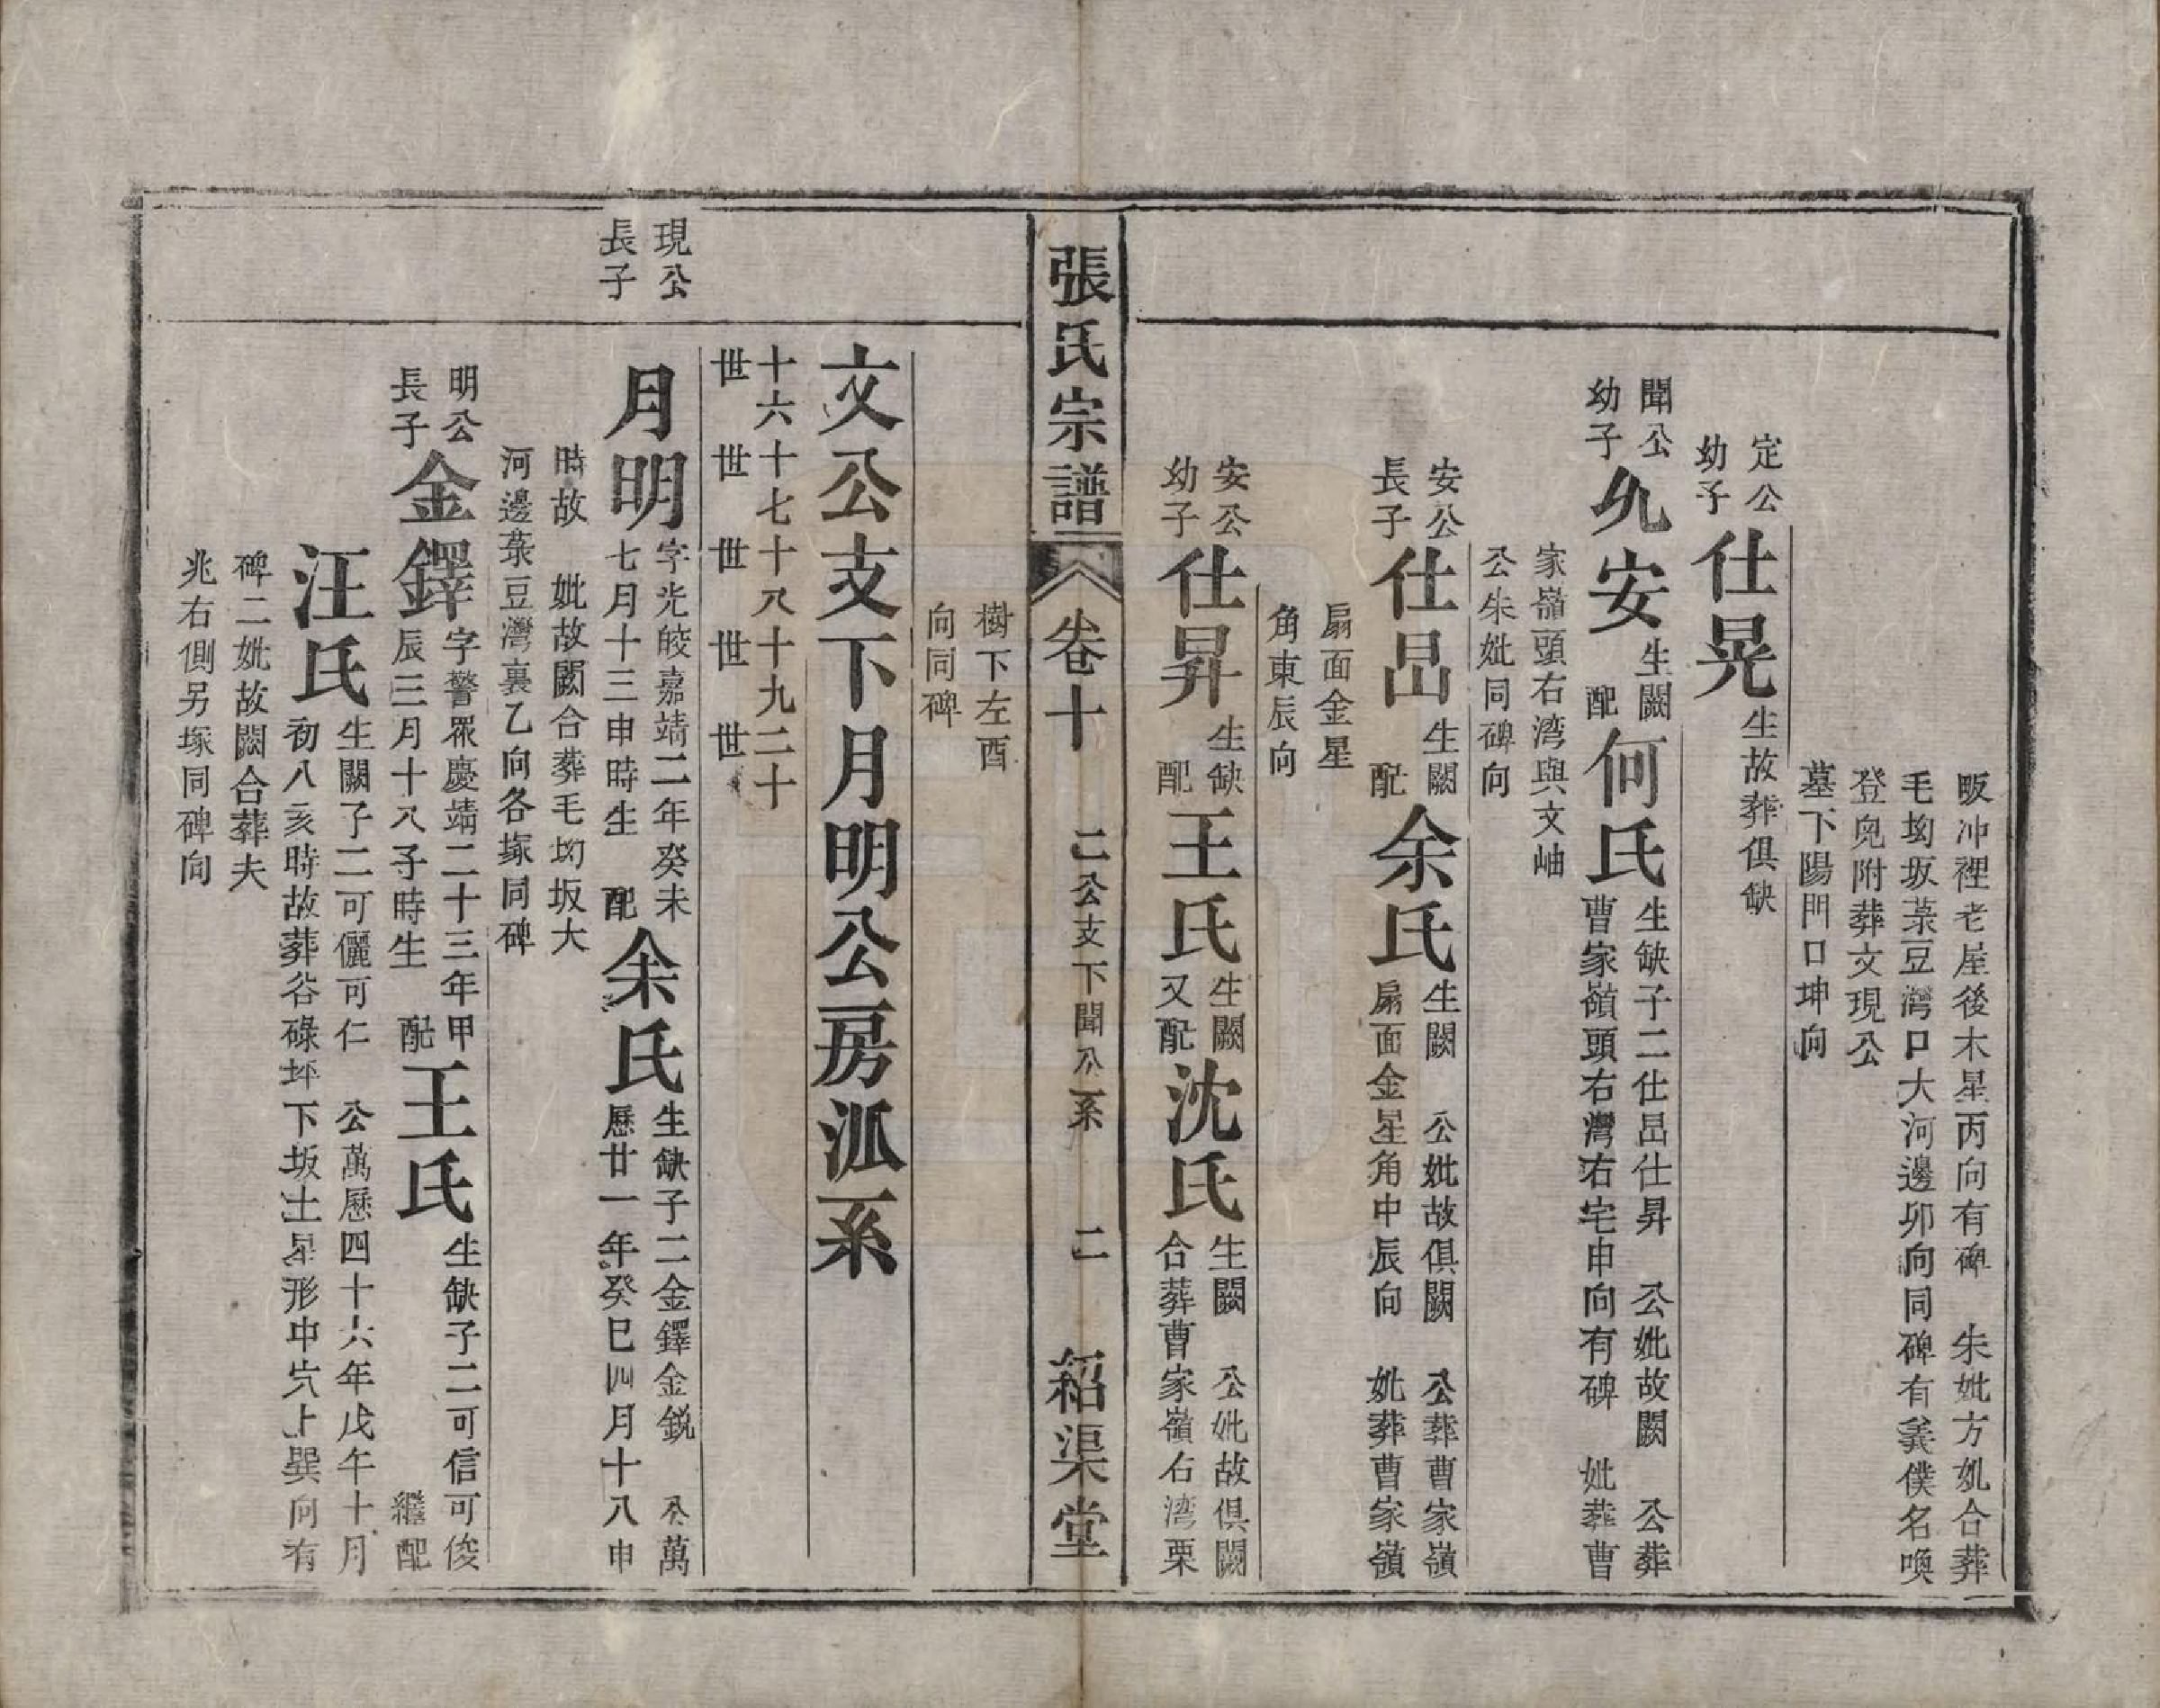 畈冲裡老屋後木星丙向有碑　朱妣方妣合葬
毛坳坂菉豆灣口大河邊卯向同碑有義僕名喚
登兒附葬文現公
墓下陽門口坤向
定公幼子
仕晃
生故葬俱缺
聞公幼子
允安
生闕　配
何氏
生缺子二仕昌仕昇　公妣故闕　公葬
曹家嶺頭右灣右宅申向有碑　妣葬曹
家嶺頭右湾與文岫
公朱妣同碑向
安公長子
仕昌
生闕　配
余氏
生闕　公妣故俱闕　公葬曹家嶺
扇面金星角中辰向　妣葬曹家嶺
扇面金星
角東辰向
安公幼子
仕昇
生缺　配
王氏
生闕　又配
沈氏
生闕　公妣故俱闕
合葬曹家嶺右湾栗
樹下左酉
向同碑
張氏宗譜　卷十　二公支下聞公系　二　紹渠堂
文公支下月明公房派系
十六世　十七世　十八世　十九世　二十世
現公長子
月明
字光皎嘉靖二年癸未
七月十三申時生　配
余氏
生缺子二金鐸金銳　公萬
歷廿一年癸巳四月十八申
時故　妣故闕合葬毛坳坂大
河邊菉豆灣裏乙向各塚同碑
明公長子
金鐸
字警眾慶靖二十三年甲
辰三月十八子時生　配
王氏
生缺子二可信可俊
繼配
汪氏
生闕子二可儷可仁　公萬歷四十六年戊午十月
初八亥時故葬谷碌坪下坂土星形中穴上巽向有
碑二妣故闕合葬夫
兆右側另塚同碑向